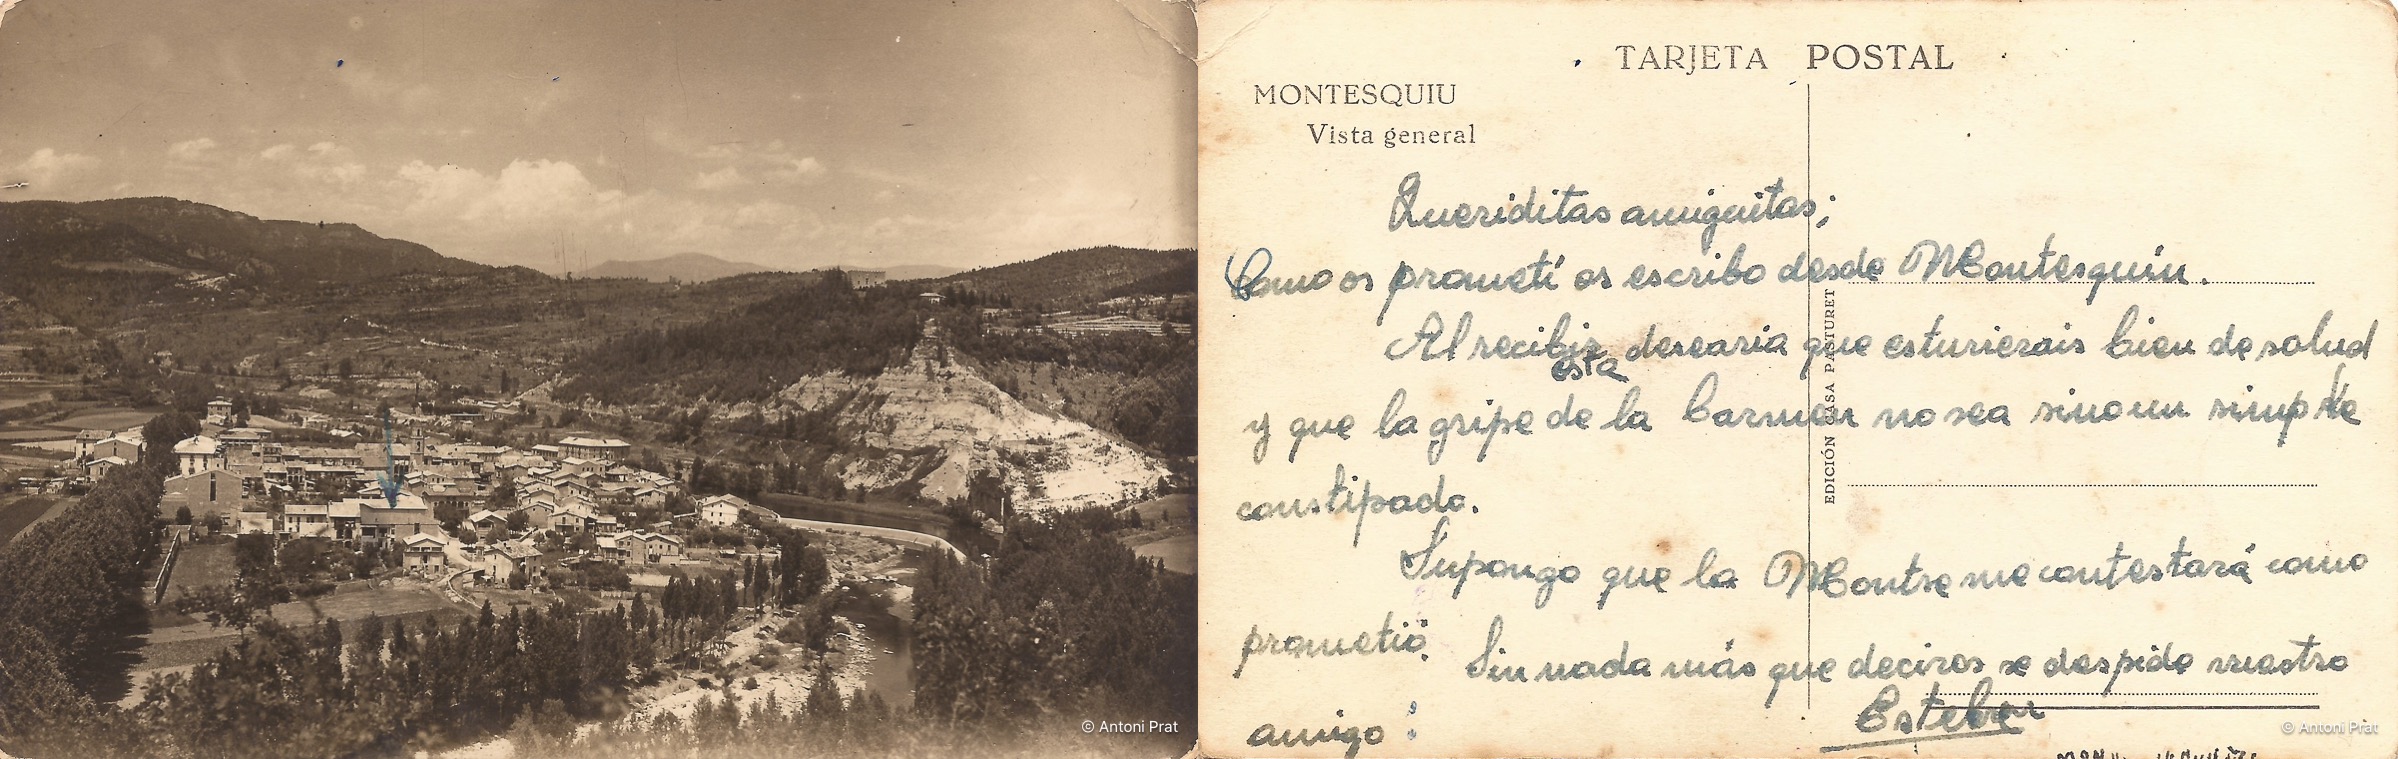 © Antoni Prat
TARJETA POSTAL
MONTESQUIU
Vista general
Queriditas amiguitas;
Como os prometí os escribo desde Montesquiu.
Al recibir esta desearia que esturierais bien de salud
y que la gripe de la Carmen no sea sino un simple
constipado.
Supongo que la Montse me contestará como
prometió.
Sin nada más que deciros se despide vuestro
amigo :
Esteban
EDICIÓN CASA PASTURET
© Antoni Prat